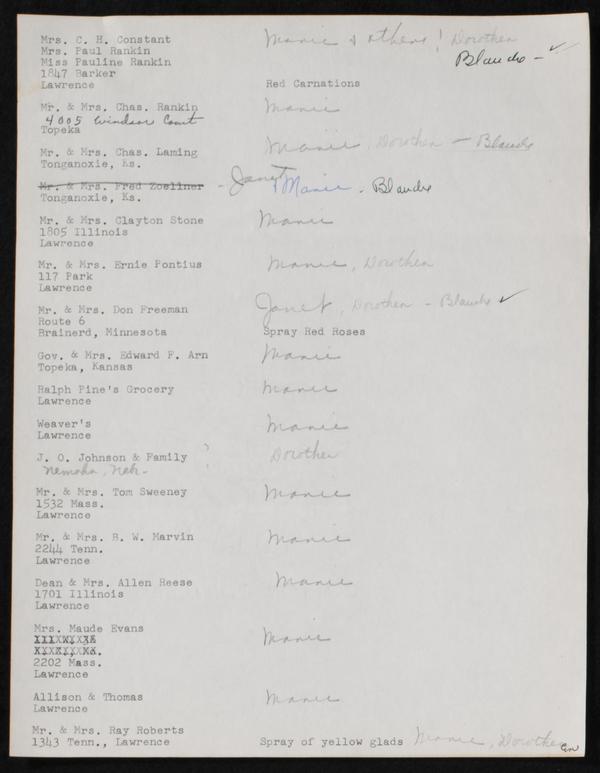 Mrs. C. H. Constant Mamie & others! Dorothea
Mrs. Paul Rankin Blanche - ✓
Miss Pauline Rankin
1847 Barker
Lawrence Red Carnations
Mr. & Mrs. Chas. Rankin Mamie
4005 Windsor Court
Topeka
Mr. & Mrs. Chas. Laming Mamie, Dorothea - Blanche
Tonganoxie, Ks.
Mr. & Mrs. Fred Zoellner - Janet & Mamie - Blanche
Tonganoxie, Ks.
Mr. & Mrs. Clayton Stone Mamie
1805 Illinois
Lawrence
Mr. & Mrs. Ernie Pontius Mamie, Dorothea
117 Park
Lawrence
Mr. & Mrs. Don Freeman Janet, Dorothea - Blanche ✓
Route 6
Brainerd, Minnesota Spray Red Roses
Gov. & Mrs. Edward F. Arn Mamie
Topeka, Kansas
Ralph Pine's Grocery Mamie
Lawrence
Weaver's Mamie
Lawrence
J. O. Johnson & Family ? Dorothea
Nemaha, Neb.
Mr. & Mrs. Tom Sweeney Mamie
1532 Mass.
Lawrence
Mr. & Mrs. B. W. Marvin Mamie
2244 Tenn.
Lawrence
Dean & Mrs. Allen Reese Mamie
1701 Illinois
Lawrence
Mrs. Maude Evans Mamie
2202 Mass.
Lawrence
Allison & Thomas Mamie
Lawrence
Mr. & Mrs. Ray Roberts
1343 Tenn., Lawrence Spray of yellow glads Mamie, Dorothea